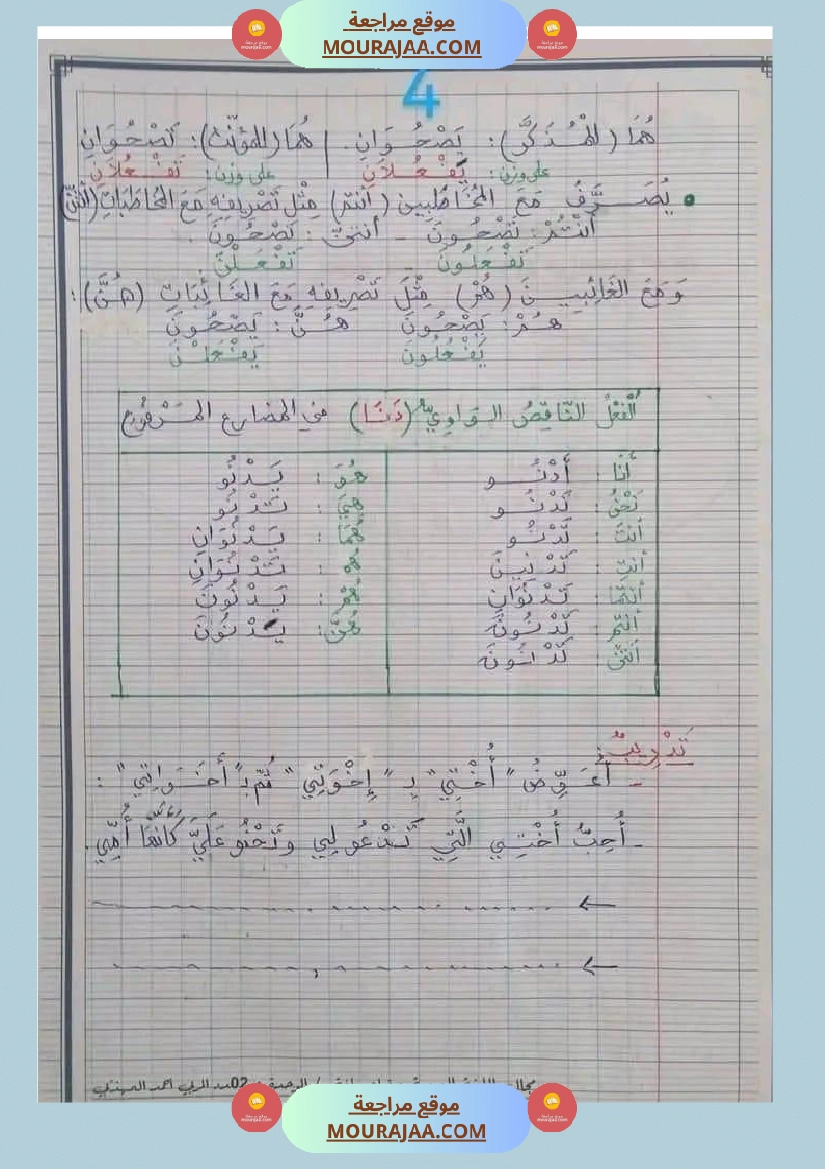 موقع مراجعة
MOURAJAA.COM
4
هُمَا (المُذَكَّر): يَصْحُوَانِ. | هُمَا (المُؤَنَّث): تَصْحُوَانِ
على وزن: يَفْعُلَانِ على وزن: تَفْعُلَانِ
• يُصَرَّفُ مَعَ المُخَاطَبِينَ (أَنْتُمْ) مِثْلَ تَصْرِيفِهِ مَعَ المُخَاطَبَاتِ (أَنْتُنَّ)
أَنْتُمْ: تَصْحُونَ - أَنْتُنَّ: تَصْحُونَ.
تَفْعَلُونَ تَفْعَلْنَ
وَمَعَ الغَائِبِيـنَ (هُمْ) مِثْلَ تَصْرِيفِهِ مَعَ الغَائِبَاتِ (هُنَّ):
هُمْ: يَصْحُونَ هُنَّ: يَصْحُونَ
يَفْعُلُونَ يَفْعَلْنَ
الْفِعْلُ النَّاقِصُ الوَاوِيُّ (دَنَا) في المضارع المَرْفُوع
أَنَا: أَدْنُو
نَحْنُ: نَدْنُو
أَنْتَ: تَدْنُو
أَنْتِ: تَدْنِينَ
أَنْتُمَا: تَدْنُوَانِ
أَنْتُمْ: تَدْنُونَ
أَنْتُنَّ: تَدْنُونَ
هُوَ: يَدْنُو
هِيَ: تَدْنُو
هُمَا: يَدْنُوَانِ
هما: تَدْنُوَانِ
هُمْ: يَدْنُونَ
هُنَّ: يَدْنُونَ
تَدْرِيبٌ:
- أُعَوِّضُ "أُخْتِي" بِـ "إِخْوَتِي" ثُمّ بِـ "أَخَوَاتِي":
- أُحِبُّ أُخْتِـي الَّتِي تَدْعُو لِي وتَحْنُو عَلَيَّ كَأَنَّهَا أُمِّي.
موقع مراجعة
MOURAJAA.COM